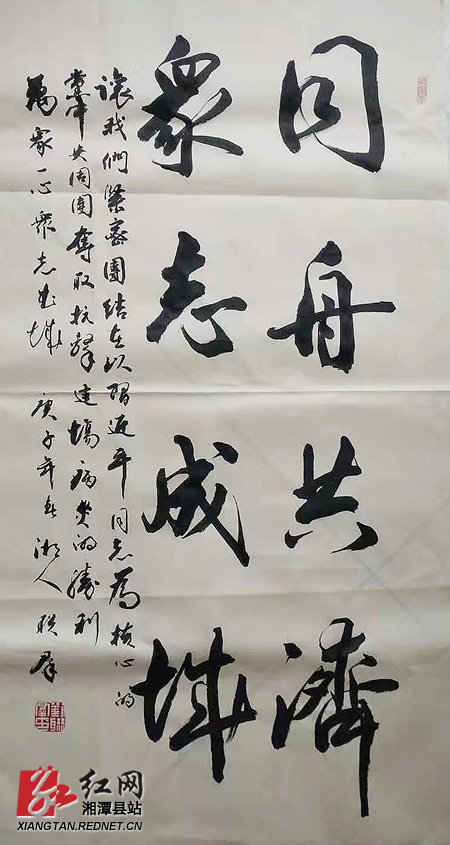 同舟共濟
衆志成城
讓我們緊密團結在以習近平同志為核心的
黨中央周圍奪取抗擊這場病炎的勝利
萬衆一心衆志成城 庚子年春 湘人 联群
红网
湘潭县站
XIANGTAN.REDNET.CN